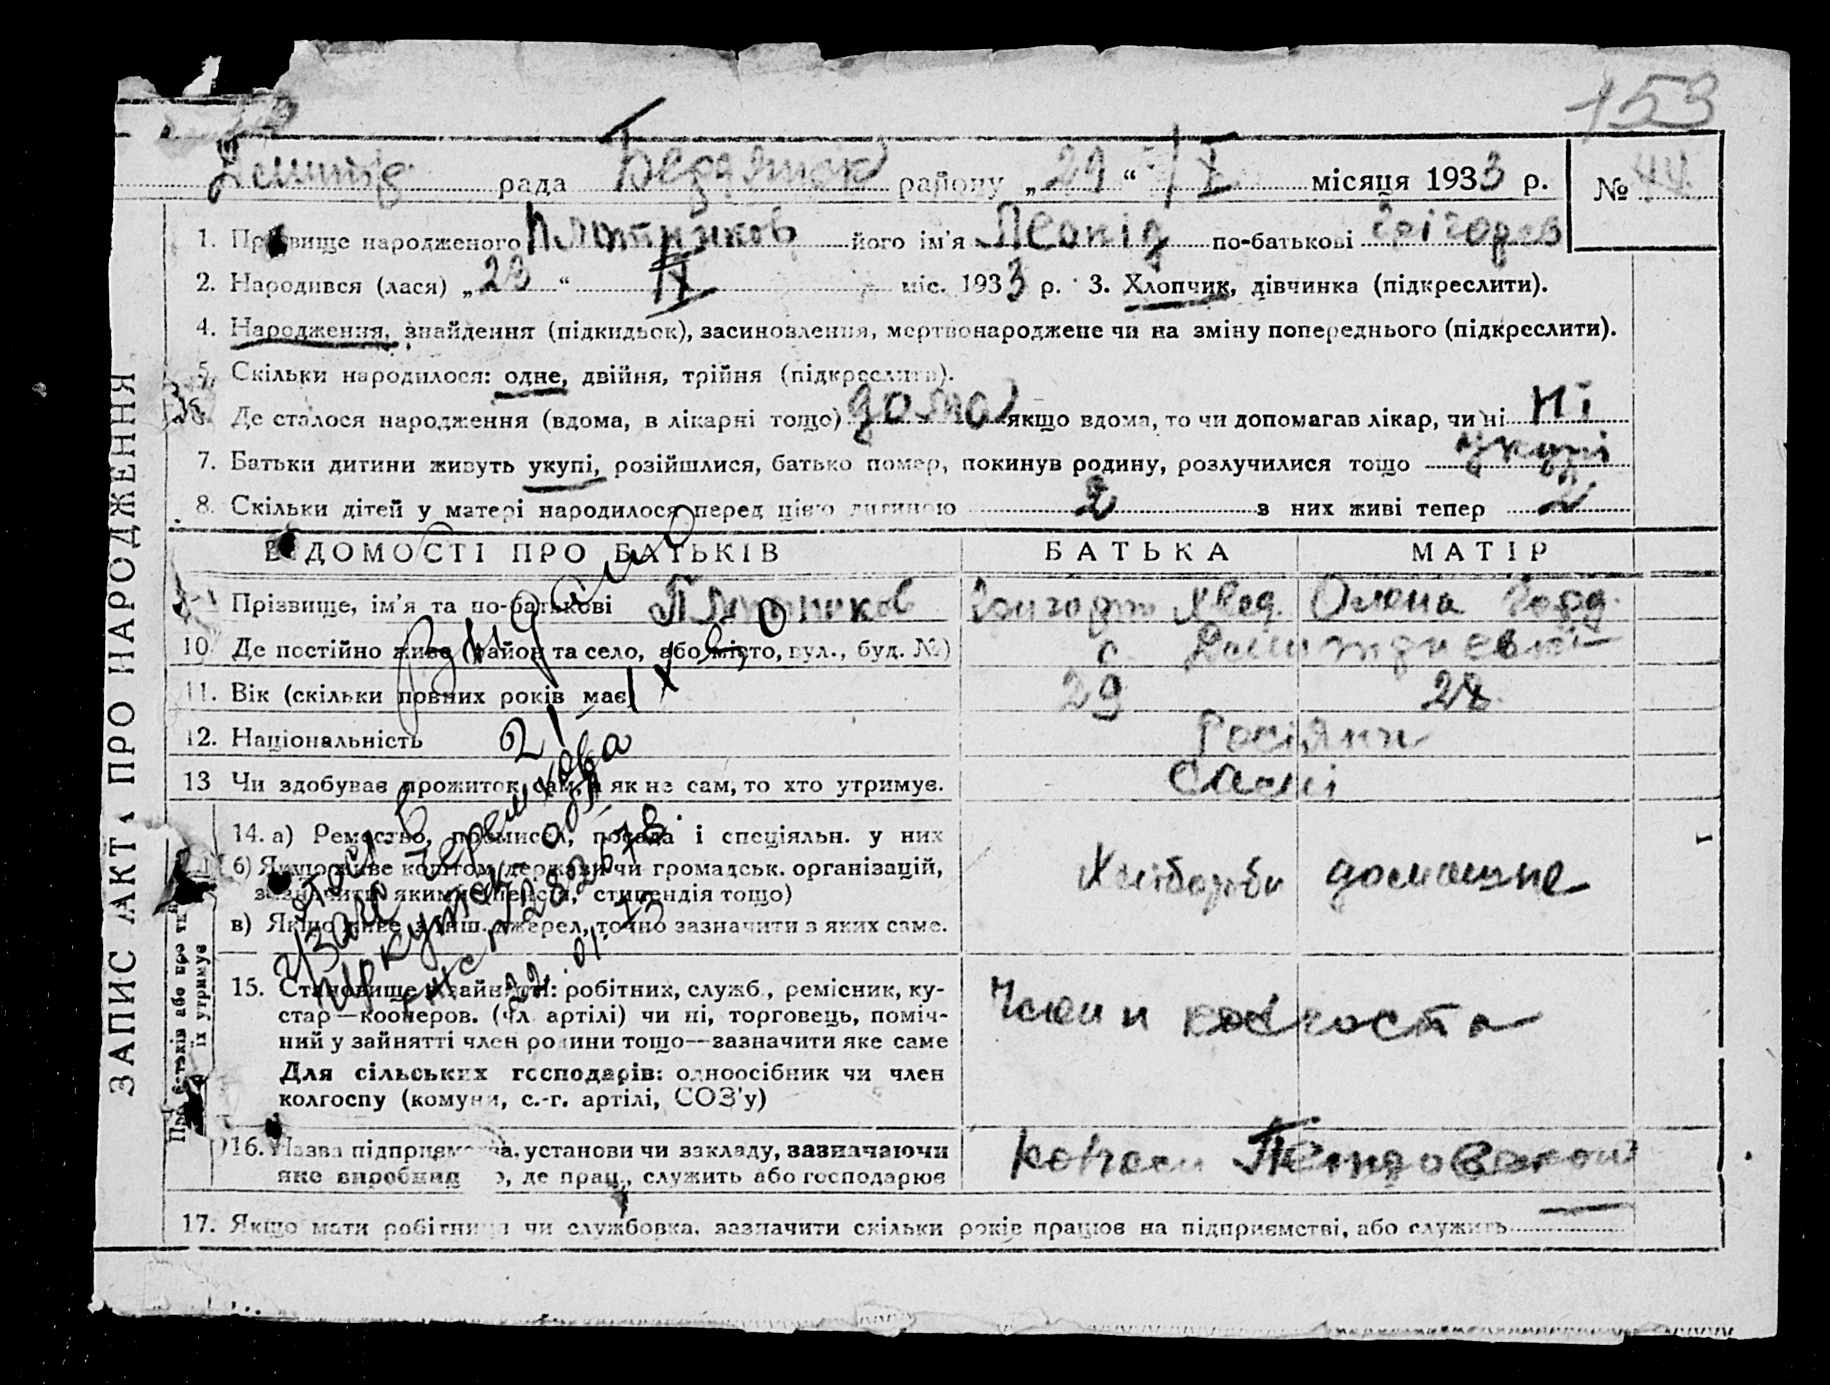 153
рада районну „29“ IX місяця 1933 р. № 44
1. Прізвище народженого Плотников його ім'я Леонід по-батькові Грігоров
2. Народився (лася) „23“ IX міс. 1933 р. 3. Хлопчик, дівчинка (підкреслити).
4. Народження, знайдення (підкидьок), засиновлення, мертвонароджене чи на зміну попереднього (підкреслити).
5. Скільки народилося: одне, двійня, трійня (підкреслити).
6. Де сталося народження (вдома, в лікарні тощо) дома якщо вдома, то чи допомагав лікар, чи ні ні
7. Батьки дитини живуть укупі, розійшлися, батько помер, покинув родину, розлучилися тощо укупі
8. Скільки дітей у матері народилося перед цією дитиною 2 з них живі тепер 2
ВІДОМОСТІ ПРО БАТЬКІВ БАТЬКА МАТІР
Прізвище, ім'я та по-батькові Плотников Григорій Хвед. Олена Горд.
10. Де постійно живе (район та село, або місто, вул., буд. №) с.
11. Вік (скільки повних років має) 29 28
12. Національність Росіяни
13 Чи здобуває прожиток сам, а як не сам, то хто утримує. Самі
14. а) Ремество, промисел, посада і спеціяльн. у них Хлібороби домашнє
б) Якщо живе коштом держави чи громадськ. організацій,
зазначити яким (пенсія, стипендія тощо)
в) Якщо живе з інш. джерел, точно зазначити з яких саме.
15. Становище в зайнятті: робітник, служб., ремісник, ку-
стар—кооперов. (чл. артілі) чи ні, торговець, поміч-
ний у зайнятті член родини тощо—зазначити яке саме
Члени колгоспа
Для сільських господарів: одноосібник чи член
колгоспу (комуни, с.-г. артілі, СОЗ'у)
16. Назва підприємства, установи чи закладу, зазначаючи
яке виробництво, де прац., служить або господарює
17. Якщо мати робітниця чи службовка, зазначити скільки років працює на підприємстві, або служить
ЗАПИС АКТА ПРО НАРОДЖЕННЯ
їх утримує
Видано